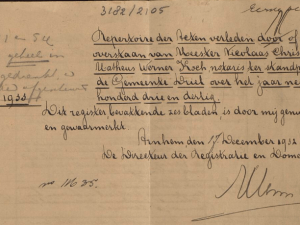 3182/2105
Repertorie der Akten verleden door of
overstaan van Meester Nicolaas Chris
Matheus Werner Koch notaris ter standpl
de Gemeente Driel over het jaar ne
honderd drie en dertig.
1933
Dit register bevattende zes bladen is door mij genu
en gewaarmerkt.
Arnhem den 17 December 1932
De Directeur der Registratie en Dome
no 11635.